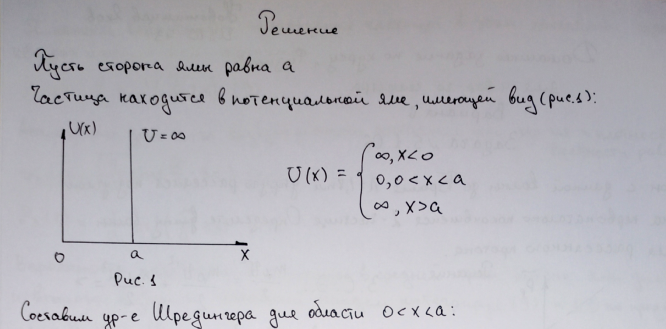 Решение
Пусть сторона ямы равна a
Частица находится в потенциальной яме, имеющей вид (рис.1):
U(x)
U=∞
U(x) = { ∞, x<0
0, 0<x<a
∞, x>a
0 a x
Рис. 1
Составим ур-е Шредингера для области 0<x<a: